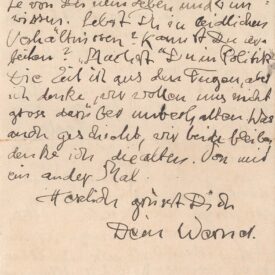 te von Dir neu Leben und Dein
wissen. Lebst Du in leidlichen
Verhältnissen? Kannst Du ar-
beiten? "Machst" Du in Politik
Die Zeit ist aus den Fugen, aber
ich denke, wir wollen uns nicht
gross darüber unterhalten. Was
auch geschieht, wir beide bleiben
denke ich die alten. Von mir
ein ander Mal.
Herzlich grüsst Dich
Dein